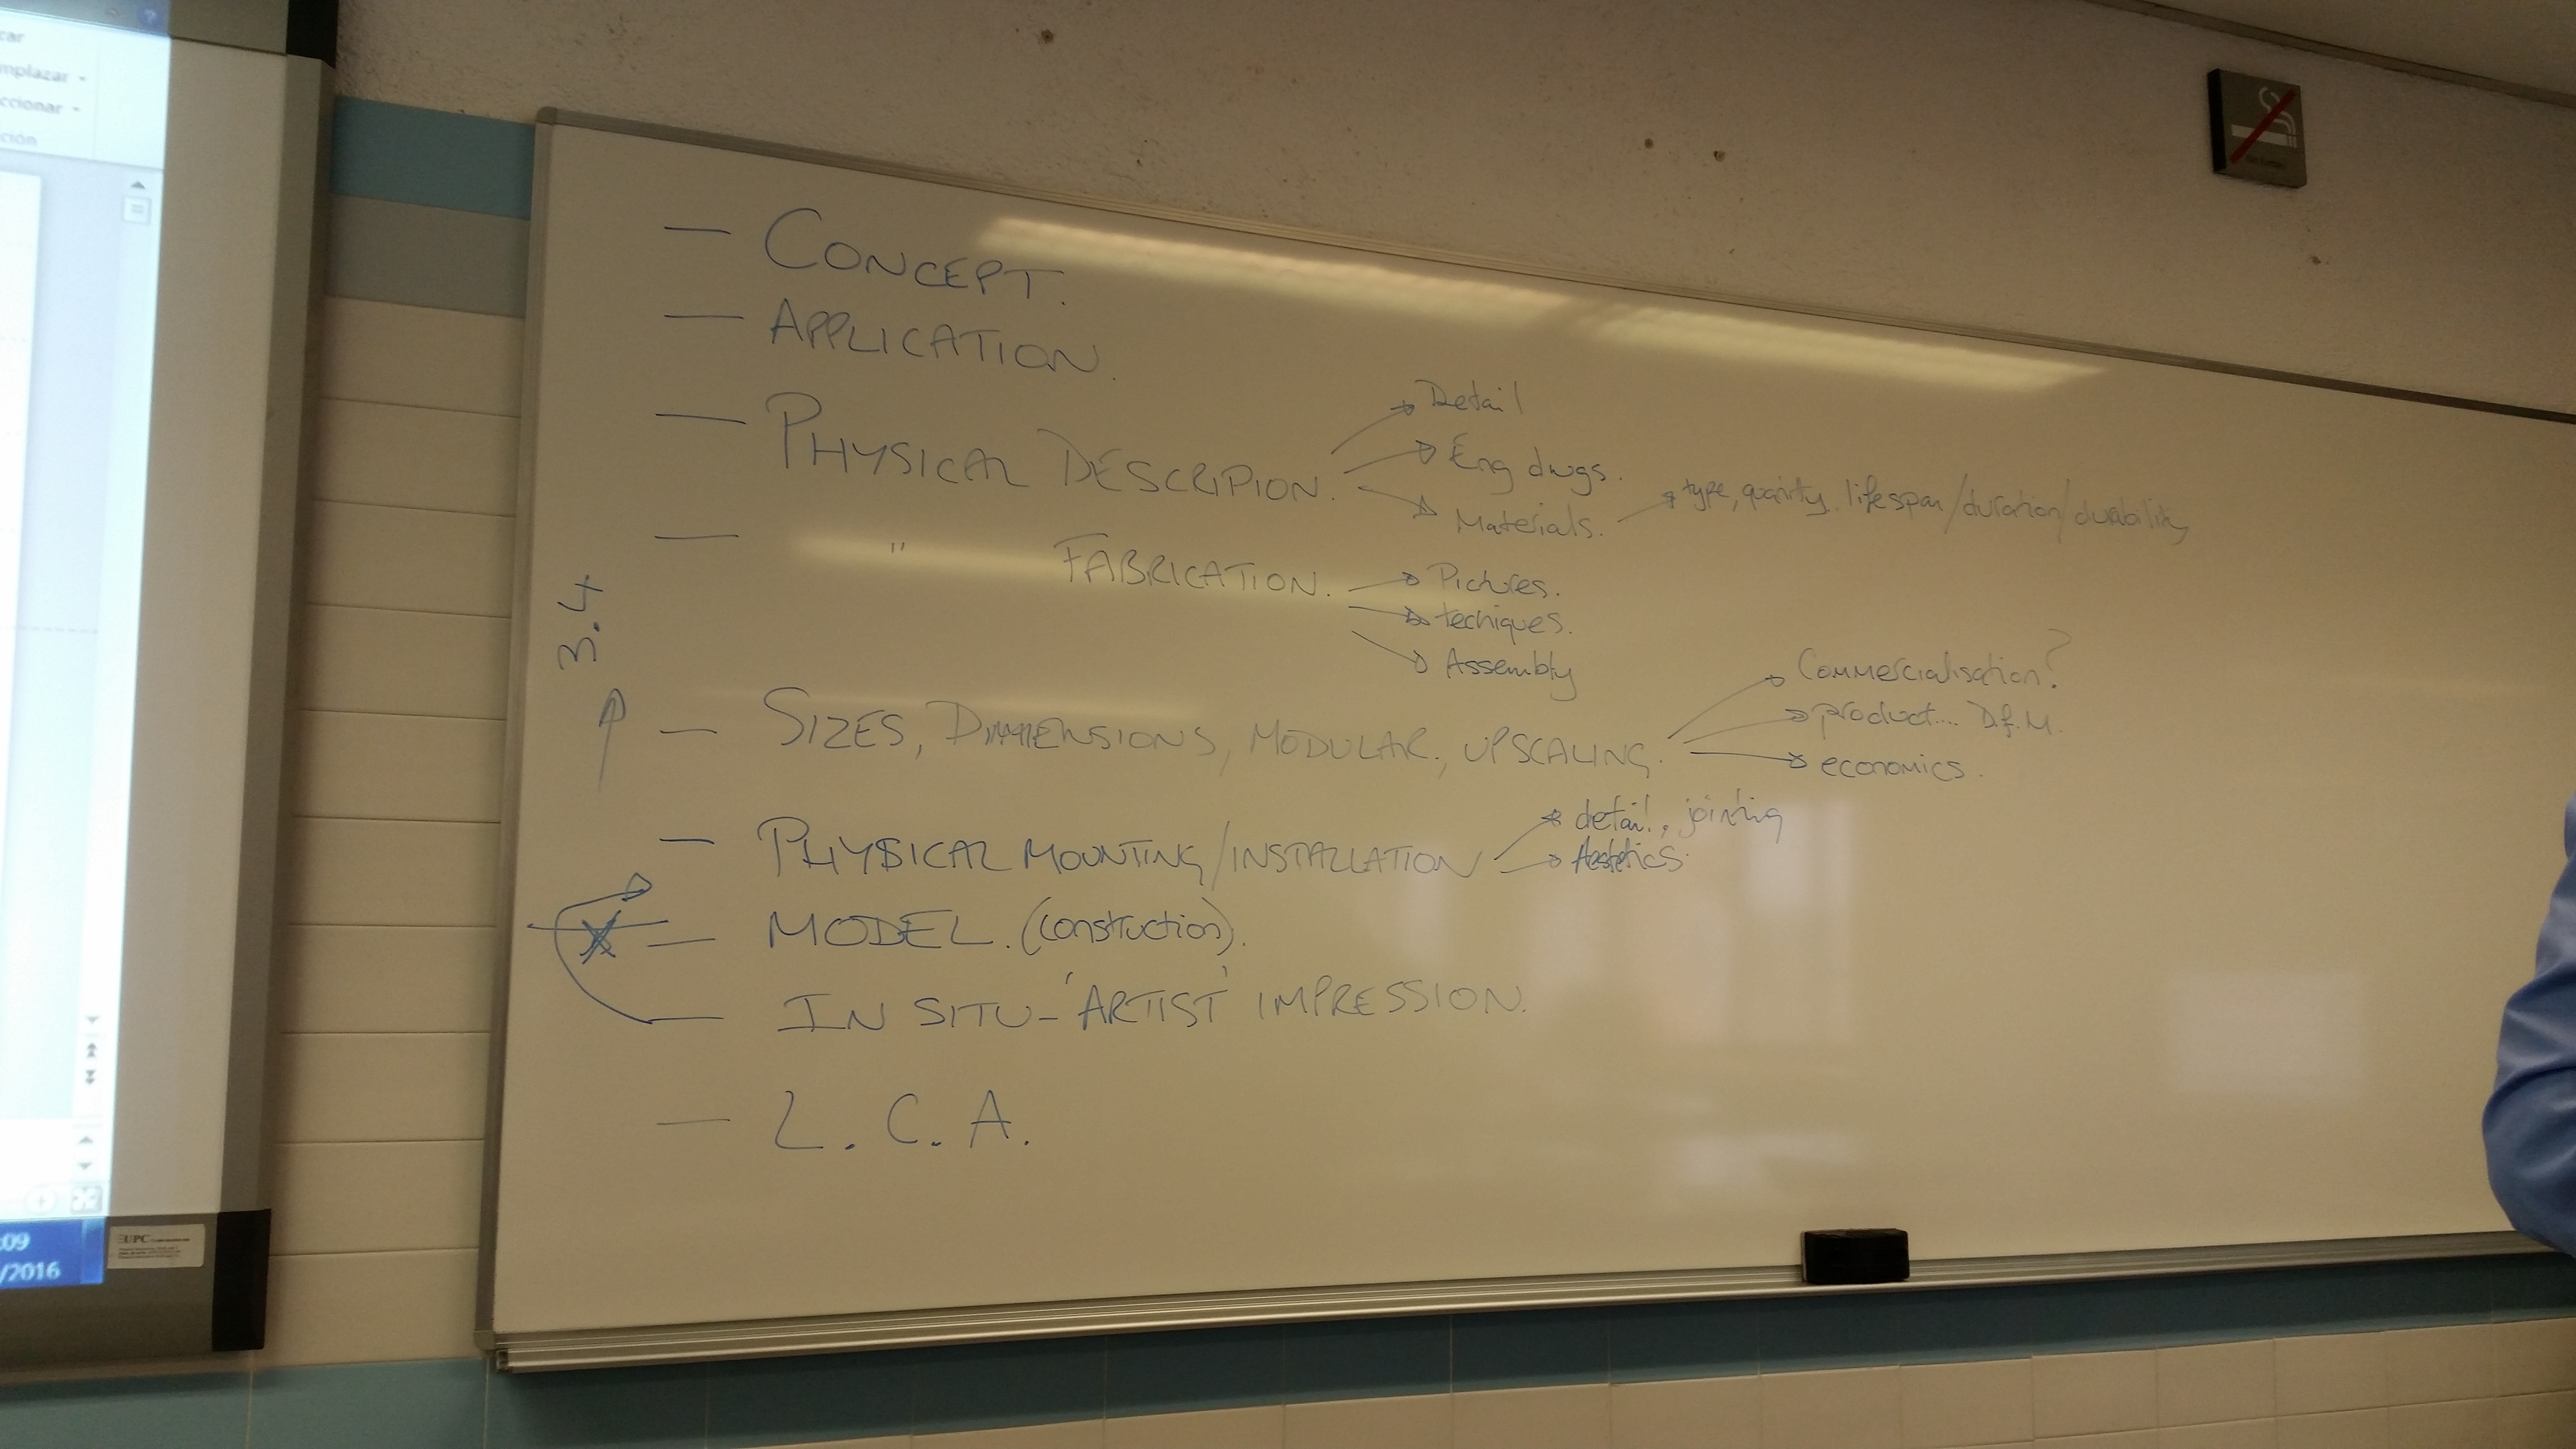 car
mplazar
ccionar
ción
— CONCEPT.
— APPLICATION.
— PHYSICAL DESCRIPION.
Detail
Eng dwgs.
Materials.
type, quantity, lifespan/duration/durability
— " FABRICATION.
Pictures.
techiques.
Assembly
3.4
— SIZES, DIMENSIONS, MODULAR, UPSCALING.
Commercialisation?
product.... D.f.M.
economics.
— PHYSICAL MOUNTING/INSTALLATION
detail, jointing
Aestetics.
— MODEL. (construction).
— IN SITU - 'ARTIST' IMPRESSION.
— L.C.A.
:09
/2016
UPC